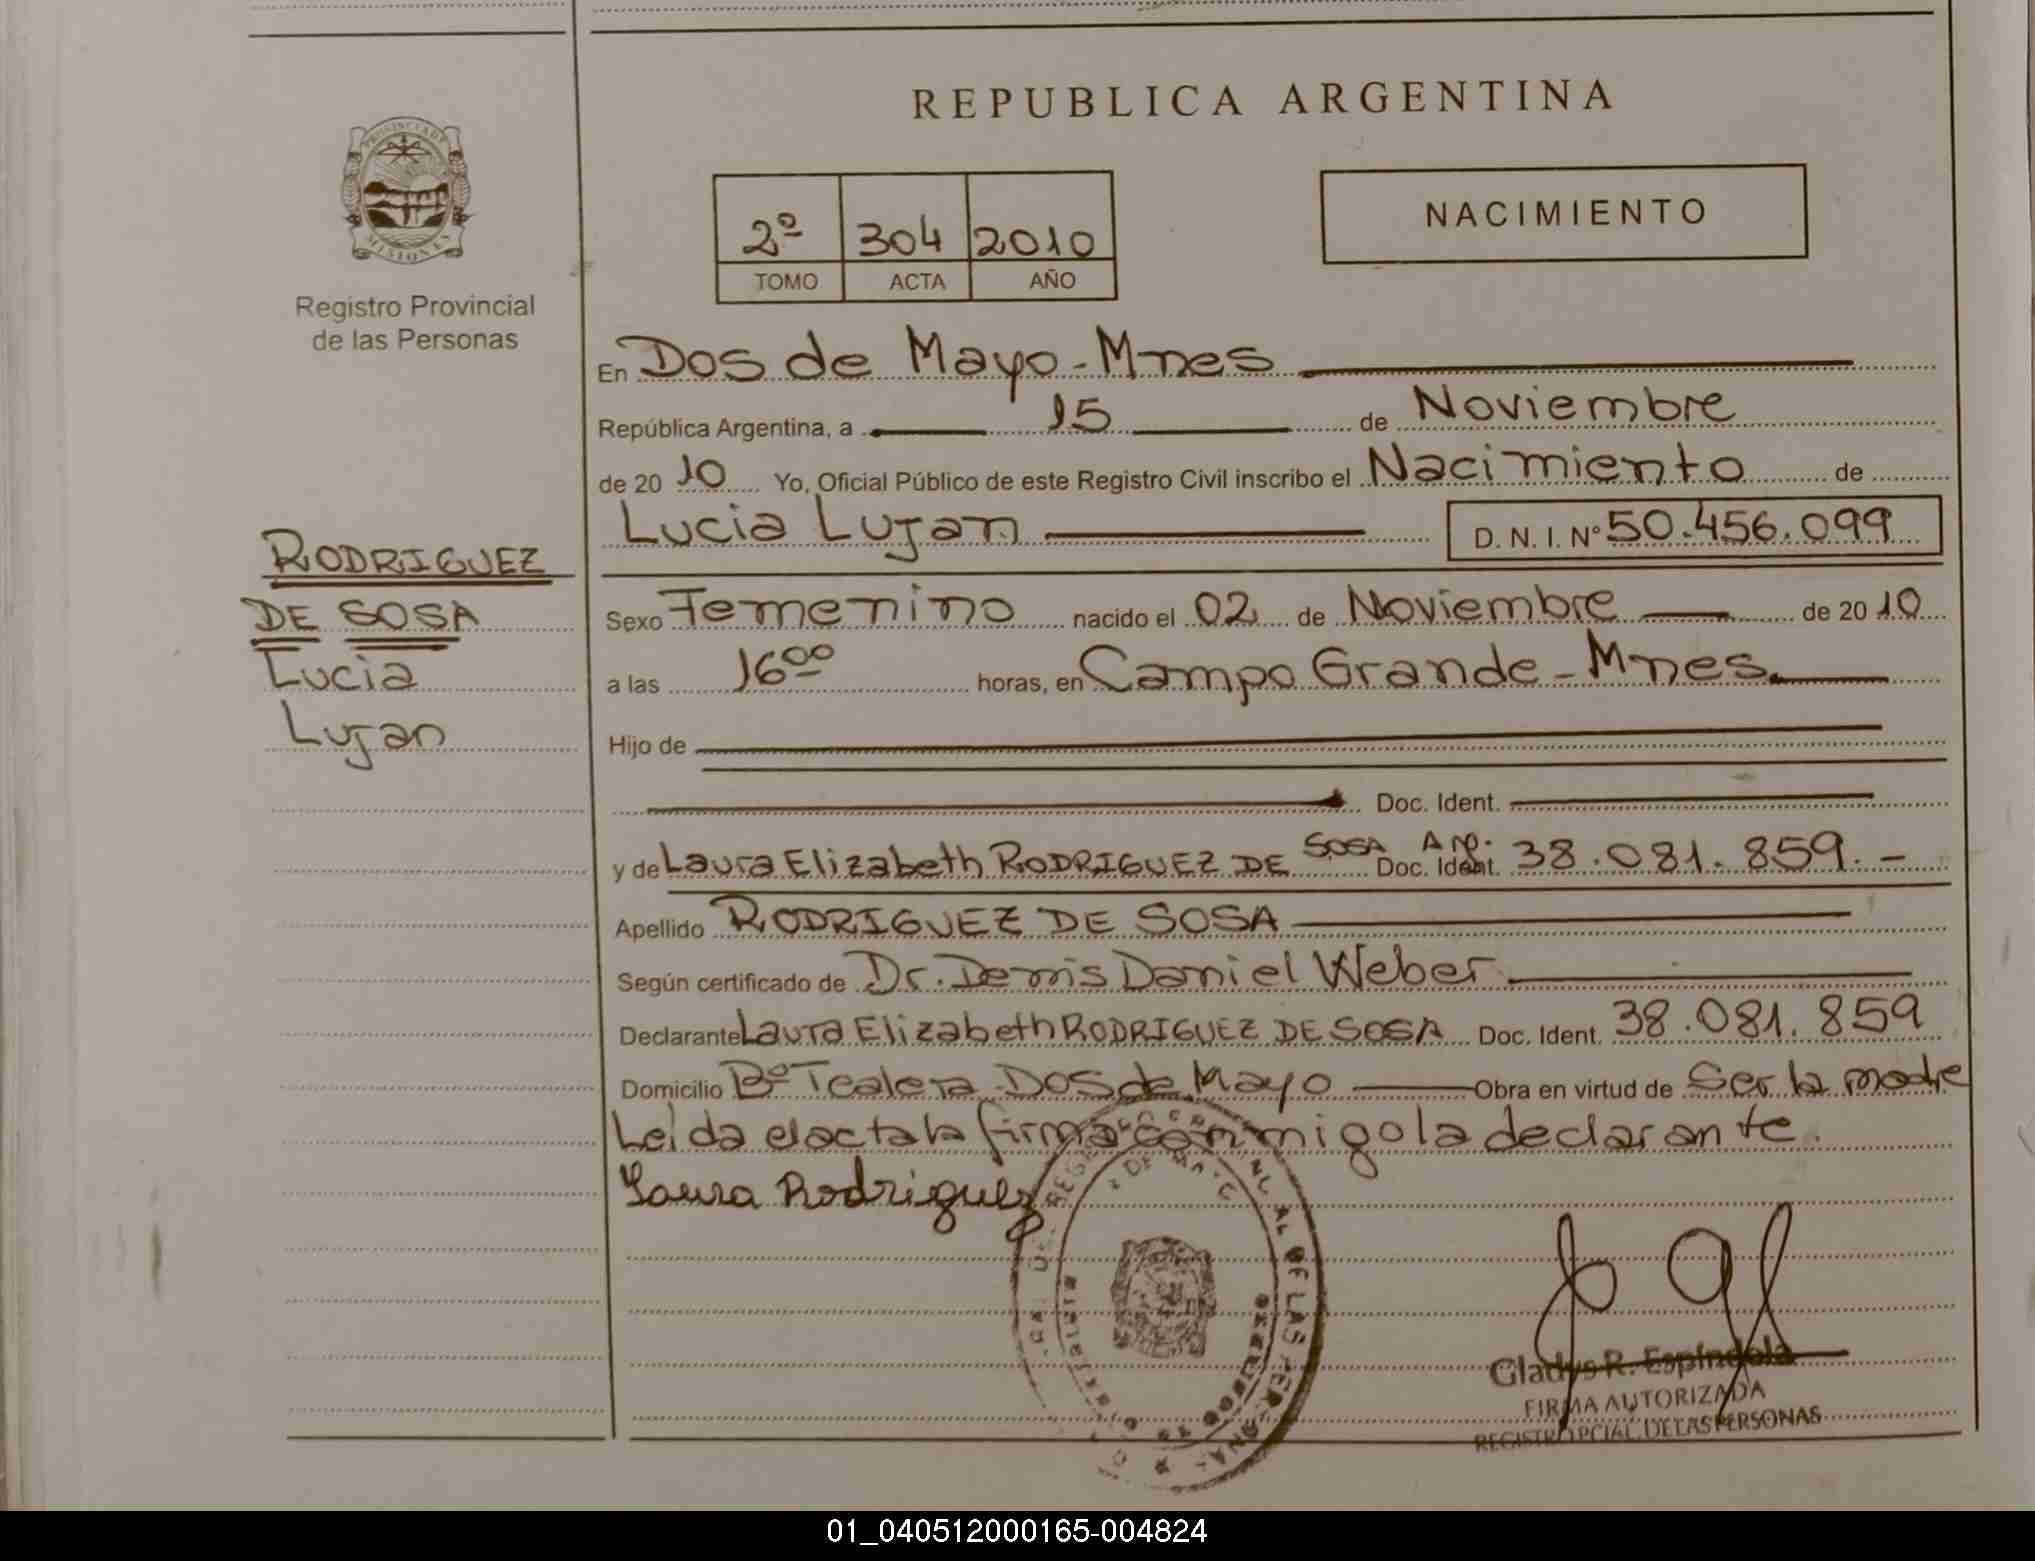 REPUBLICA ARGENTINA
PROVINCIA DE MISIONES
Registro Provincial
de las Personas
2º 304 2010
TOMO ACTA AÑO
NACIMIENTO
En Dos de Mayo - Mnes
República Argentina, a 15 de Noviembre
de 20 10 Yo, Oficial Público de este Registro Civil inscribo el Nacimiento de
Lucia Lujan D. N. I. Nº 50.456.099
RODRIGUEZ
DE SOSA
Lucia
Lujan
Sexo Femenino nacido el 02 de Noviembre de 20 10
a las 16ºº horas, en Campo Grande - Mnes.
Hijo de
Doc. Ident.
y de Laura Elizabeth RODRIGUEZ DE SOSA Doc. Ident. Arg. 38.081.859. -
Apellido RODRIGUEZ DE SOSA
Según certificado de Dr. Dennis Daniel Weber
Declarante Laura Elizabeth RODRIGUEZ DE SOSA Doc. Ident. 38.081.859
Domicilio Bº Tealera Dos de Mayo Obra en virtud de Ser la madre
Leida el acta la firma conmigo la declarante.
Laura Rodriguez
DE LAS PERSONAS
Gladys R. Espíndola
FIRMA AUTORIZADA
REGISTRO PCIAL. DE LAS PERSONAS
01_040512000165-004824